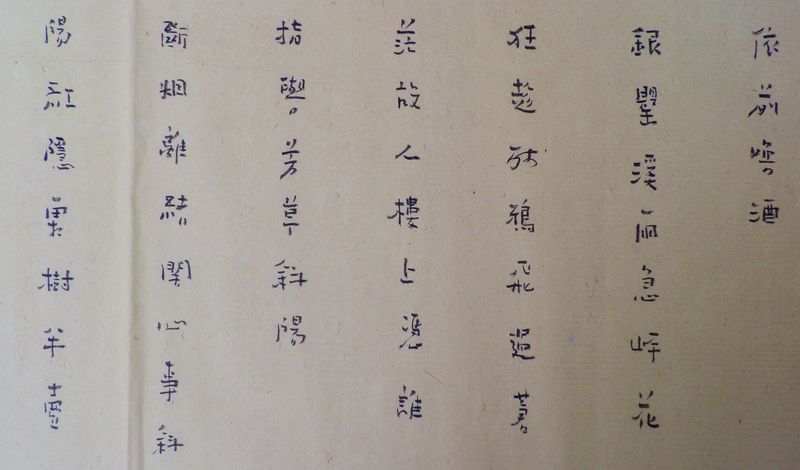 依前喚酒
銀罌溪雨急岸花
狂趁殘鴉飛過蒼
茫故人樓上憑誰
指與芳草斜陽
斷烟離緒關心事斜
陽紅隱霜樹半壺